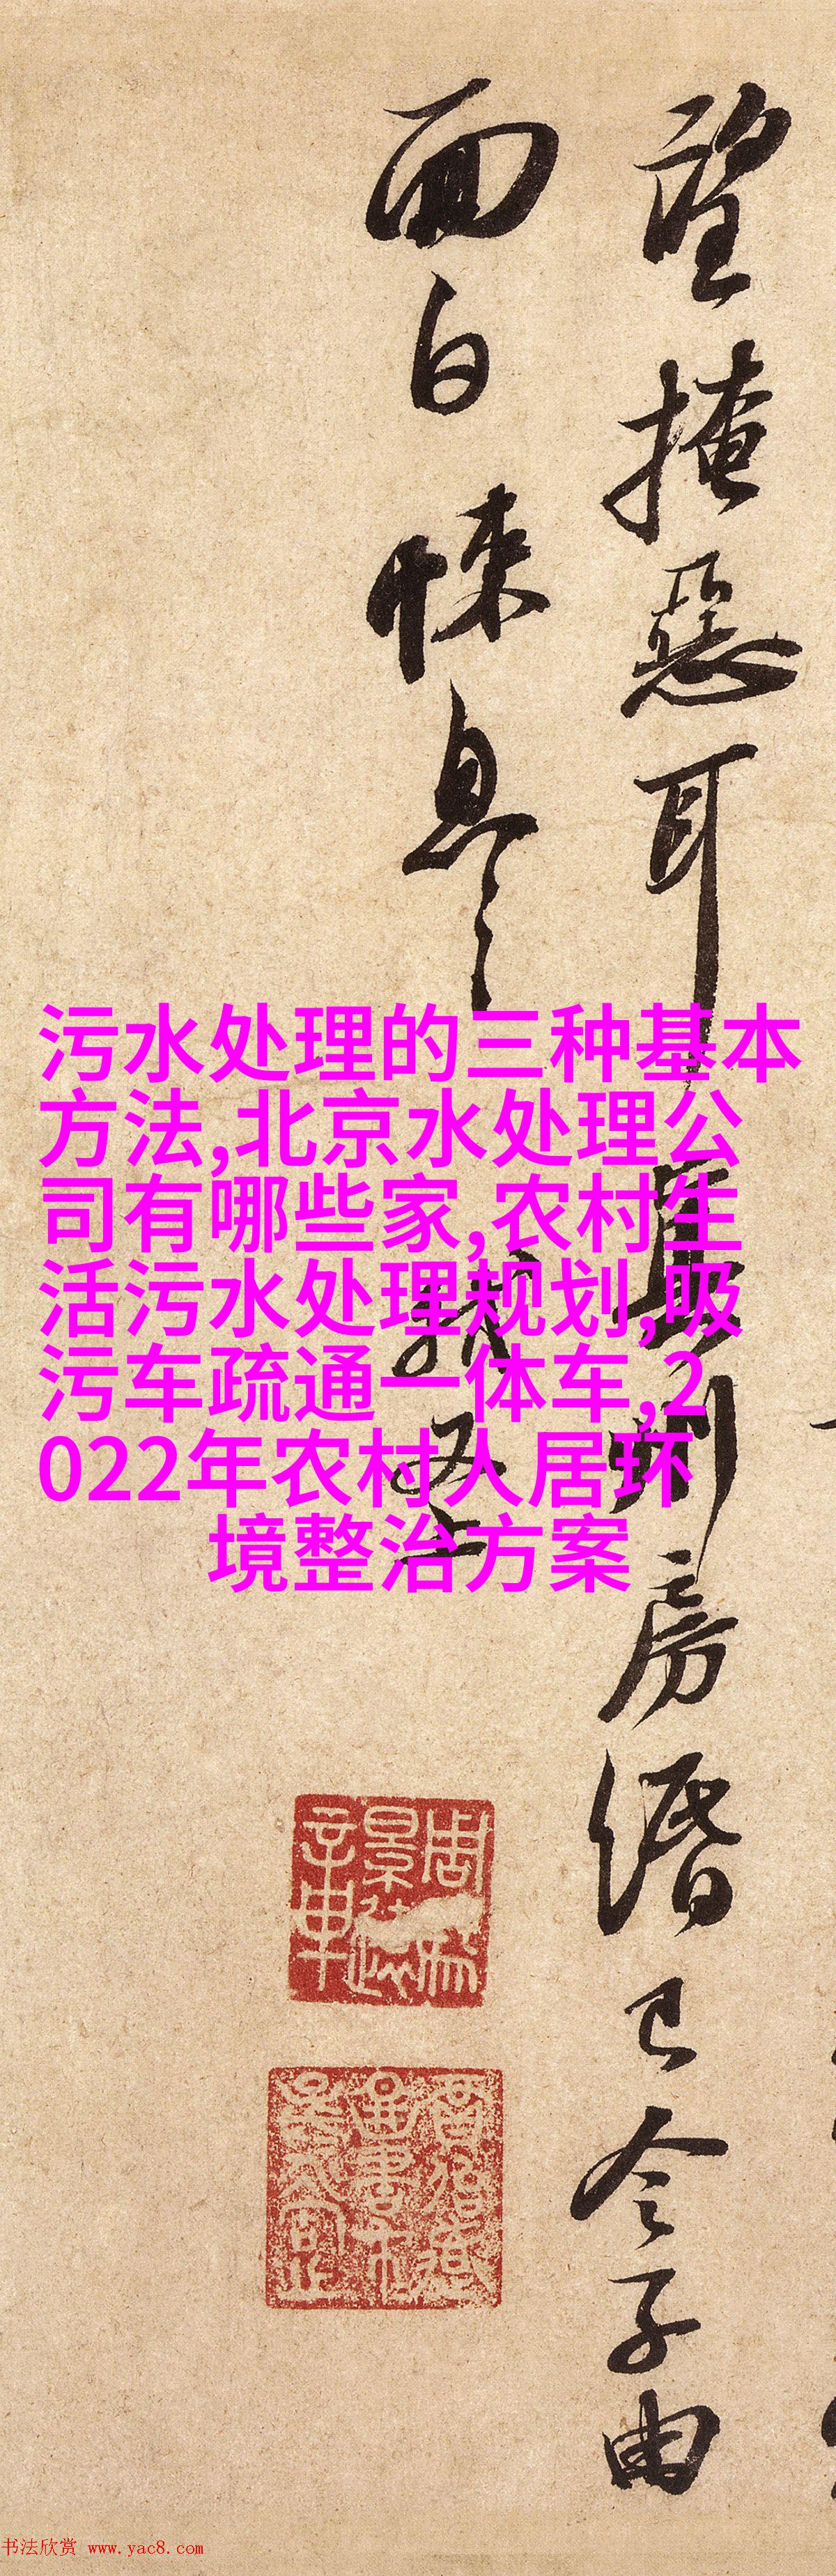 望掩惡耳真州房緡已令子由
面白悚息〻軾又上
污水处理的三种基本
方法,北京水处理公
司有哪些家,农村生
活污水处理规划,吸
污车疏通一体车,2
022年农村人居环
境整治方案
书法欣赏 www.yac8.com